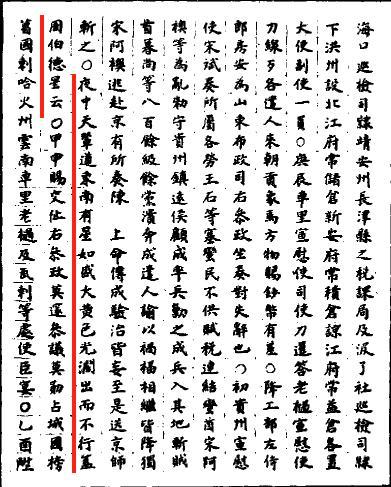 海口巡檢司隸靖安州長津縣之税課局及淚丁社巡檢司隸
下洪州設北江府常儲倉新安府常積倉諒江府常益倉各置
大使副使一員○庚辰車里宣慰使司使刀暹答老撾宣慰使
刀線歹各遣人來朝貢象馬方物賜鈔幣有差○降工部左侍
郎房安為山東布政司右參政坐奏對失辭也○初貴州宣慰
使宋斌奏所屬各勞王石等寨蠻民不供賦稅連結蠻酋宋阿
襖等為亂勅守貴州鎮遠侯顧成率兵勦之成兵入其地斬賊
首暮尚等八百餘級餘黨潰奔成遣人諭以禍福相繼皆降獨
宋阿襖逃赴京有所奏陳 上命傳成驗治皆妄至是送京師
斬之○夜中天輦道東南有星如盞大黃色光潤出而不行蓋
周伯德星云○甲申賜交阯右參政莫邃參議莫勛占城國榜
葛國剌哈火州雲南車里老撾及瓦剌等處使臣宴○乙酉陞